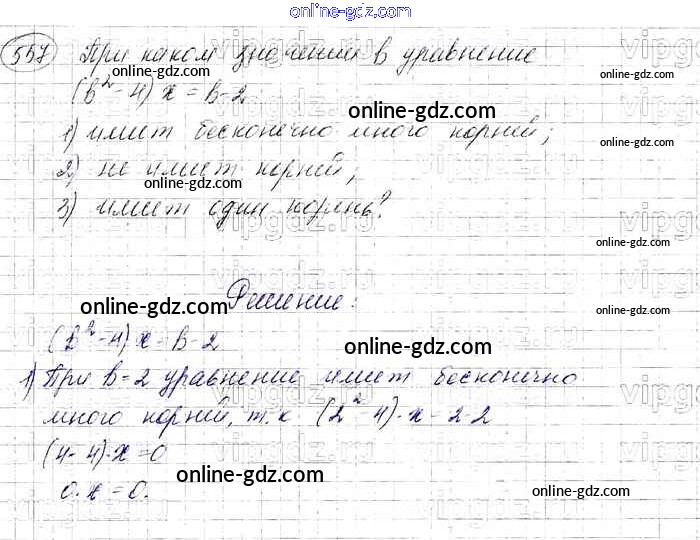 online-gdz.com
557 При каком значении в уравнение
online-gdz.com
(в² - 4) x = в - 2
online-gdz.com
1) имеет бесконечно много корней;
online-gdz.com
2) не имеет корней,
online-gdz.com
3) имеет один корень?
online-gdz.com
online-gdz.com
Решение:
online-gdz.com
online-gdz.com
(в² - 4) x = в - 2
online-gdz.com
1) При в = 2 уравнение имеет бесконечно
много корней, т.к (2² - 4) · x = 2 - 2
(4 - 4) · x = 0
online-gdz.com
0 · x = 0.
online-gdz.com